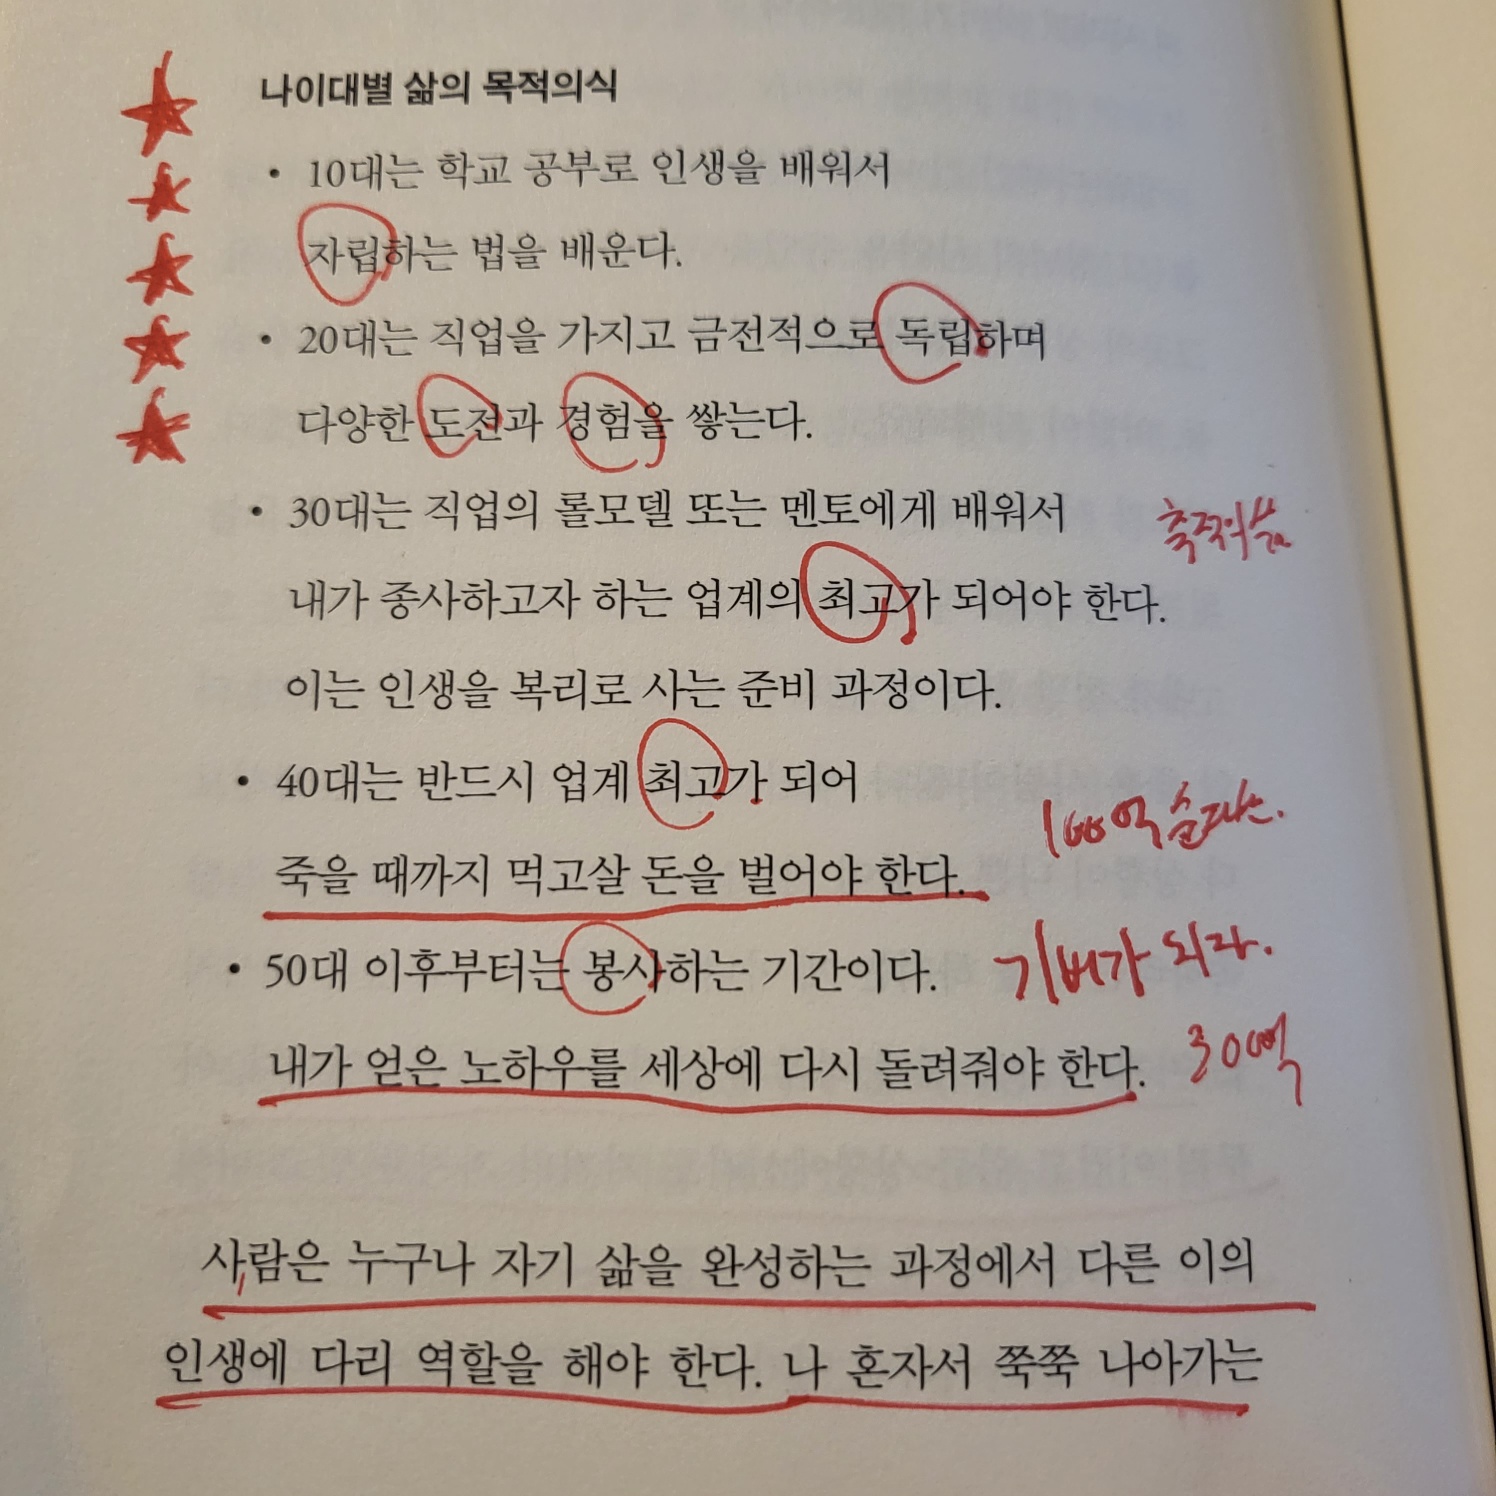 나이대별 삶의 목적의식
• 10대는 학교 공부로 인생을 배워서
자립하는 법을 배운다.
• 20대는 직업을 가지고 금전적으로 독립하며
다양한 도전과 경험을 쌓는다.
• 30대는 직업의 롤모델 또는 멘토에게 배워서
내가 종사하고자 하는 업계의 최고가 되어야 한다.
이는 인생을 복리로 사는 준비 과정이다.
• 40대는 반드시 업계 최고가 되어
100억
죽을 때까지 먹고살 돈을 벌어야 한다.
• 50대 이후부터는 봉사하는 기간이다.
기버가 되자.
내가 얻은 노하우를 세상에 다시 돌려줘야 한다.
사람은 누구나 자기 삶을 완성하는 과정에서 다른 이의
인생에 다리 역할을 해야 한다. 나 혼자서 쭉쭉 나아가는